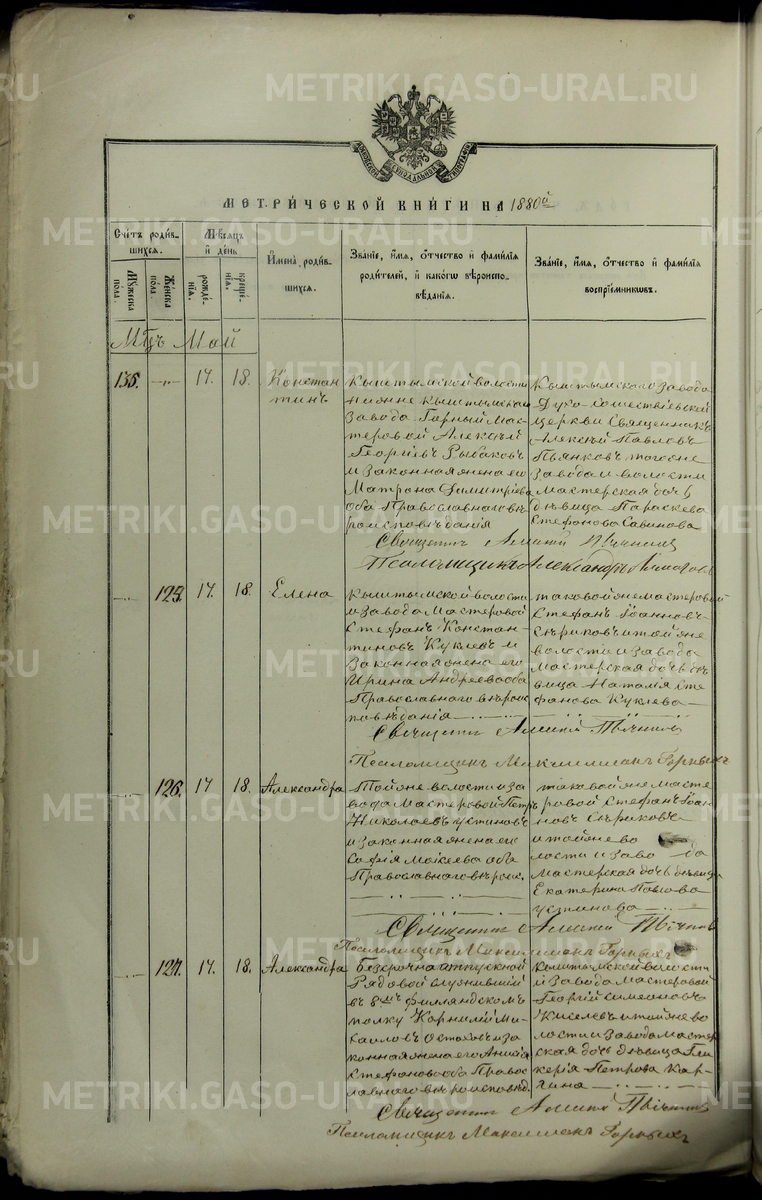 METRIKI.GASO-URAL.RU
МОСКОВСКОЙ СѴНОДАЛЬНОЙ ТИПОГРАФІИ
МЕТРИ́ЧЕСКОЙ КНИ́ГИ НА 1880й
Счётъ роди́в-
шихся.
Му́жеска
по́ла.
Же́нска
по́ла.
Мѣ́сяцъ
и҆ де́нь
рожде́-
нїя.
креще́-
нїя.
И҆мена̀ роди́в-
шихся.
Зва́нїе, и҆́мя, ѻ҆́тчество и҆ фами́лїя
роди́телей, и҆ како́гѡ вѣроиспо-
вѣ́данїя.
Зва́нїе, и҆́мя, ѻ҆́тчество и҆ фами́лїя
воспрїе́мниковъ.
Мцъ Май
135. 17. 18. Констан
тинъ
Кыштымской волости
Кыштымскаго
завода Горный Мас-
теровой Алексѣй
Георгіевъ Рыбаковъ
и законная жена его
Матрона Димитріева
оба Православнаго вѣ
роисповѣданія
Кыштымскаго завода
Духо-Сошествіевской
церкви Священникъ
Алексѣй Павловъ
Пьянковъ тогоже
завода и волости
Мастерская дочь
дѣвица Параскева
Стефанова Савинова
Священникъ Алексѣй
Псаломщикъ Александръ
125. 17. 18. Елена
Кыштымской волости
и завода Мастеровой
Стефанъ Констан-
тиновъ Куклевъ и
законная жена его
Ирина Андреева оба
Православнаго вѣроис
повѣданія
таковойже мастеровой
Стефанъ Іоанновъ
Сѣриковъ и тойже
волости и завода
Мастерская дочь дѣ
вица Наталія Сте
фанова Куклева
Священникъ Алексѣй
Псаломщикъ Максимиліанъ Горныхъ
126. 17 18. Александра
Тойже волости и за
вода Мастеровой Петръ
Николаевъ Устиновъ
и законная жена его
Софія Моісеева оба
Православнаго вѣроис.
таковойже масте
ровой Стефанъ Іоан
новъ Сѣриковъ
и тойже во
лости и заво да
Мастерская дочь дѣвица
Екатерина Павлова
Устинова
Священникъ Алексѣй
Псаломщикъ Максимиліанъ Горныхъ
127. 17. 18. Александра
Безсрочно отпускной
Рядовой служившій
въ 8мъ Финляндскомъ
полку Корнилій Ми-
хаиловъ Остаховъ и за
конная жена его Анисія
Стефанова оба Право
славнаго вѣроисповѣд.
Кыштымской волости
и завода Мастеровой
Георгій Симеоновъ
Киселевъ и тойже во
лости и завода мастер
ская дочь дѣвица Гли
керія Петрова Кар-
гина
Священникъ Алексѣй
Псаломщикъ Максимиліанъ Горныхъ